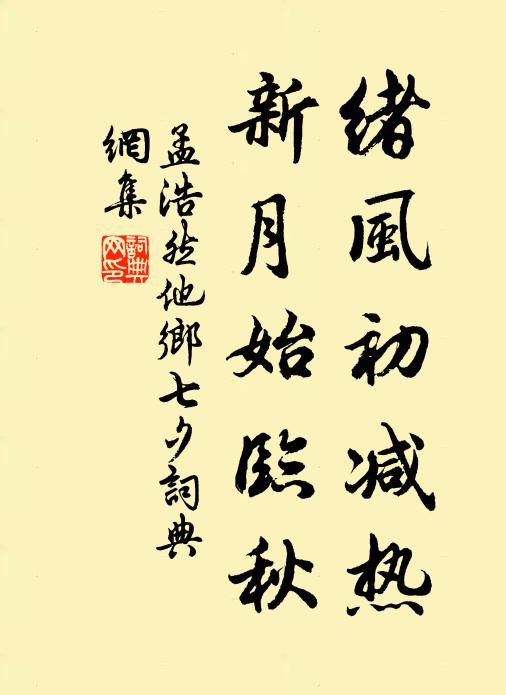 緒風初减热
新月始臨秋
孟浩然他鄉七夕詞典
網集
詞典
网印